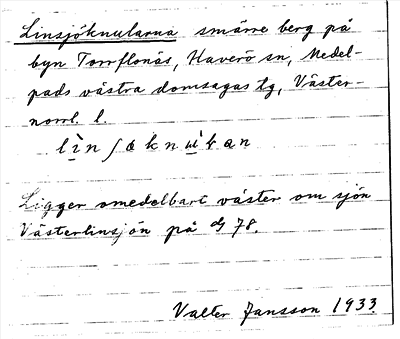 Linsjöknularna smärre berg på
byn Torrflonäs, Haverö sn, Medel-
pads västra domsagas tg, Väster-
norrl. l.
Ligger omedelbart väster om sjön
Västerlinsjön på 78.
Valter Jansson 1933